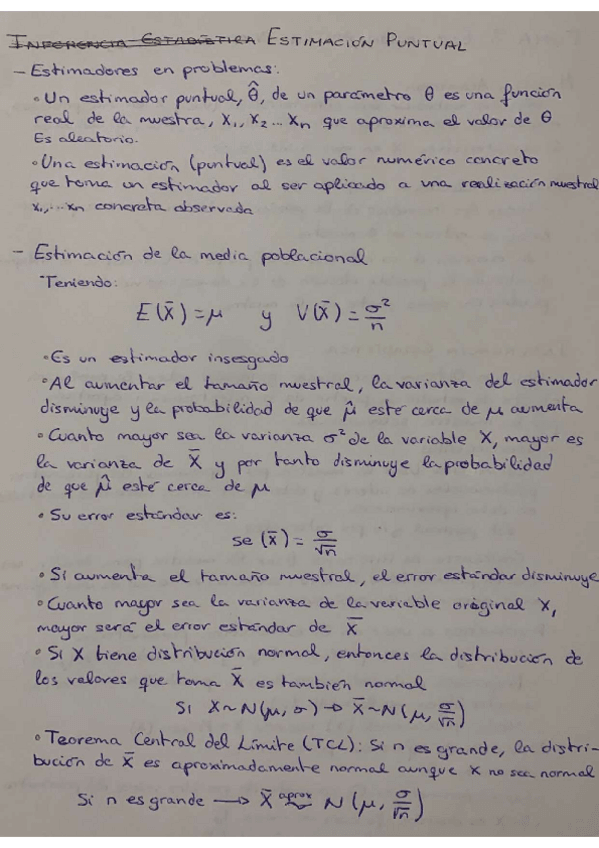 INFERENCIA ESTADÍSTICA ESTIMACIÓN PUNTUAL
- Estimadores en problemas:
• Un estimador puntual, θ̂, de un parámetro θ es una función
real de la muestra, X₁, X₂ ... Xn que aproxima el valor de θ
Es aleatorio.
• Una estimación (puntual) es el valor numérico concreto
que toma un estimador al ser aplicado a una realización muestral
x₁, ... xn concreta observada
- Estimación de la media poblacional
• Teniendo:
E(X̄) = μ y V(X̄) = σ²/n
• Es un estimador insesgado
• Al aumentar el tamaño muestral, la varianza del estimador
disminuye y la probabilidad de que μ̂ esté cerca de μ aumenta
• Cuanto mayor sea la varianza σ² de la variable X, mayor es
la varianza de X̄ y por tanto disminuye la probabilidad
de que μ̂ esté cerca de μ
• Su error estándar es:
se (x̄) = σ/√n
• Si aumenta el tamaño muestral, el error estándar disminuye
• Cuanto mayor sea la varianza de la variable original X,
mayor será el error estándar de X̄
• Si X tiene distribución normal, entonces la distribución de
los valores que toma X̄ es también normal
Si X ~ N(μ, σ) → X̄ ~ N(μ, σ/√n)
• Teorema Central del Límite (TCL): Si n es grande, la distri-
bución de X̄ es aproximadamente normal aunque X no sea normal
Si n es grande → X̄ aprox ~ N(μ, σ/√n)